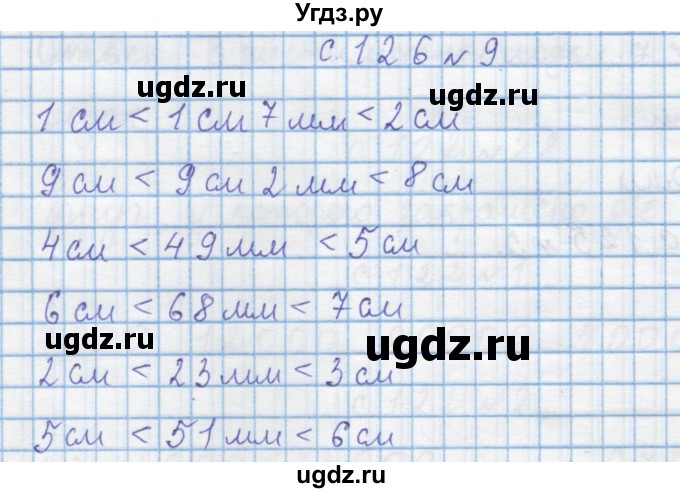 Угдз.ру
с. 126 № 9
ugdz.ru ugdz.ru
1 см < 1 см 7 мм < 2 см
9 см < 9 см 2 мм < 8 см
4 см < 49 мм < 5 см
6 см < 68 мм < 7 см
ugdz.ru ugdz.ru
2 см < 23 мм < 3 см
5 см < 51 мм < 6 см
ugdz.ru